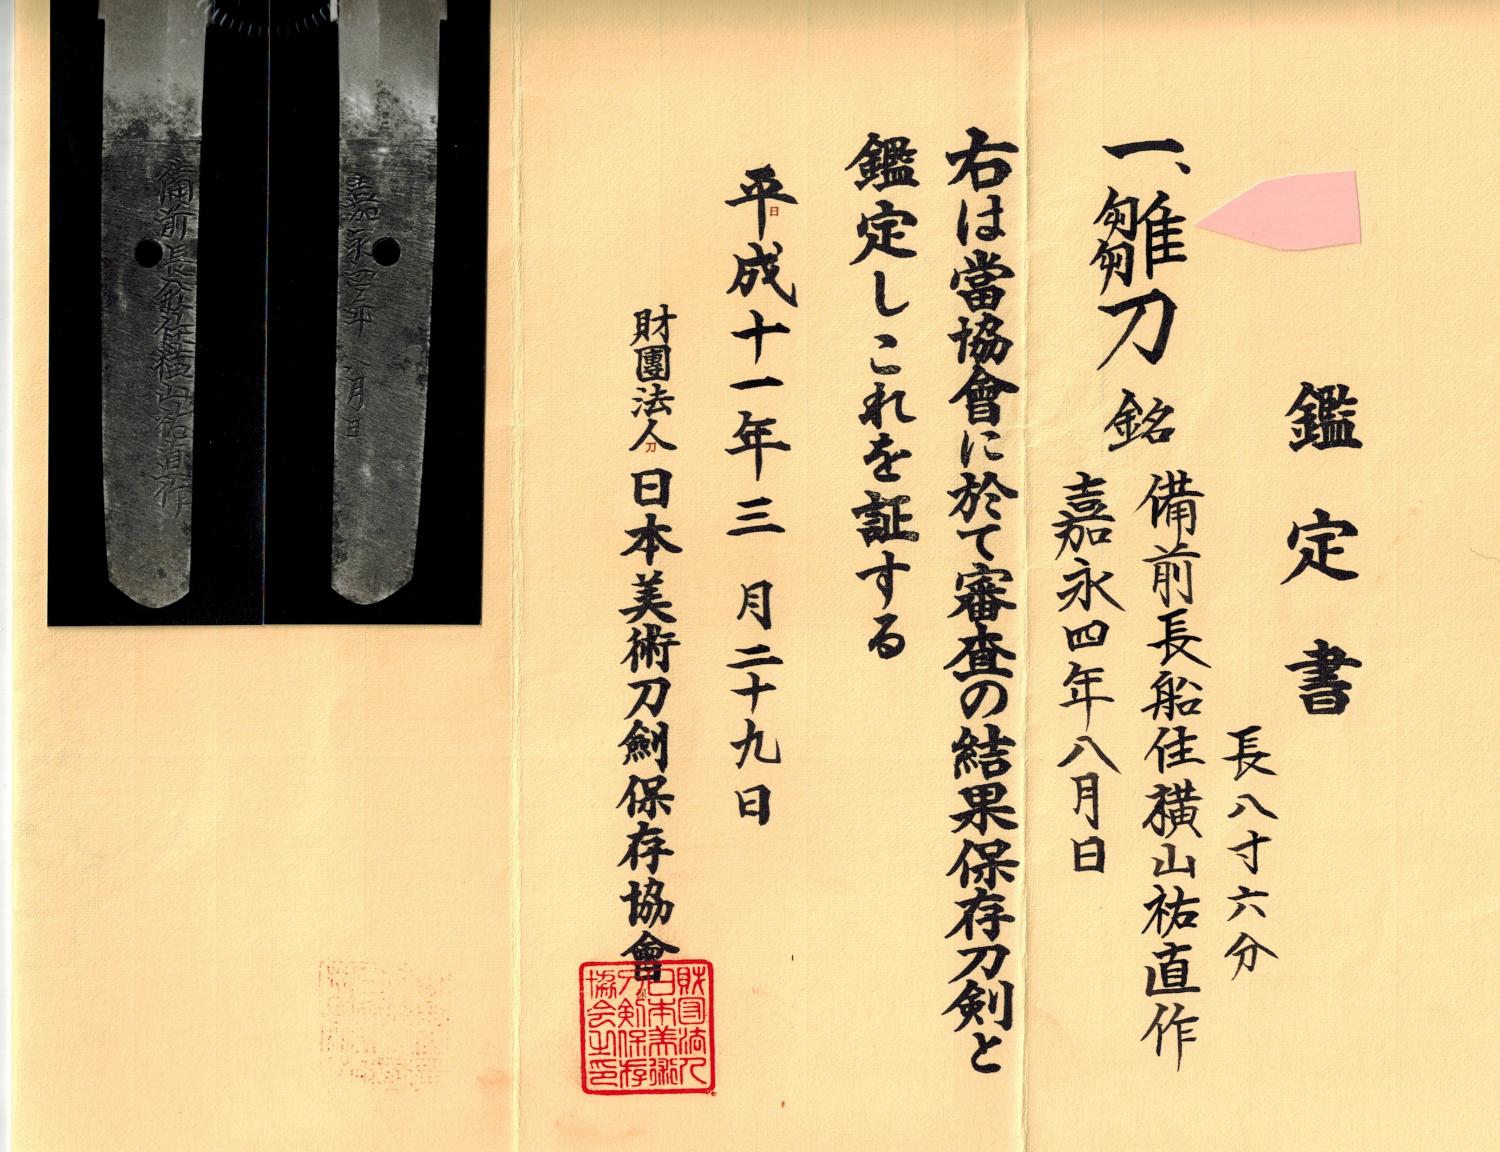 鑑定書
長八寸六分
一、雛刀 銘
備前長船住横山祐直作
嘉永四年八月日
右は當協會に於て審査の結果保存刀剣と
鑑定しこれを証する
平成十一年三月二十九日
財團法人日本美術刀劍保存協會
財団法人
日本美術
刀剣保存
協会之印
嘉永四年八月日
備前長船住横山祐直作